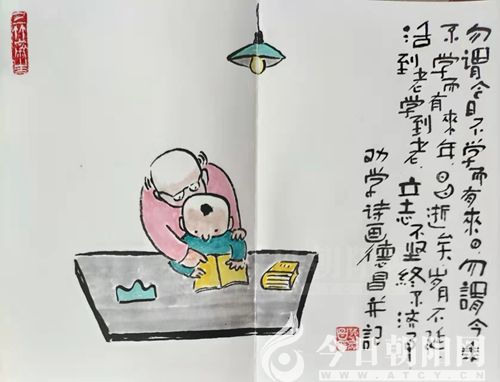 勿謂今日不学而有來日勿謂今年
不学而有來年日月逝矣岁月不延
活到老学到老立志不坚终不济事
劝学诗画德昌并記
今日朝阳网